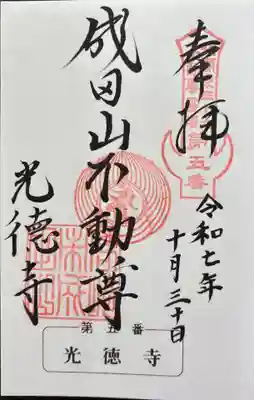 奉拝
令和七年
十月三十日
成田山不動尊
光徳寺
第五番
光徳寺